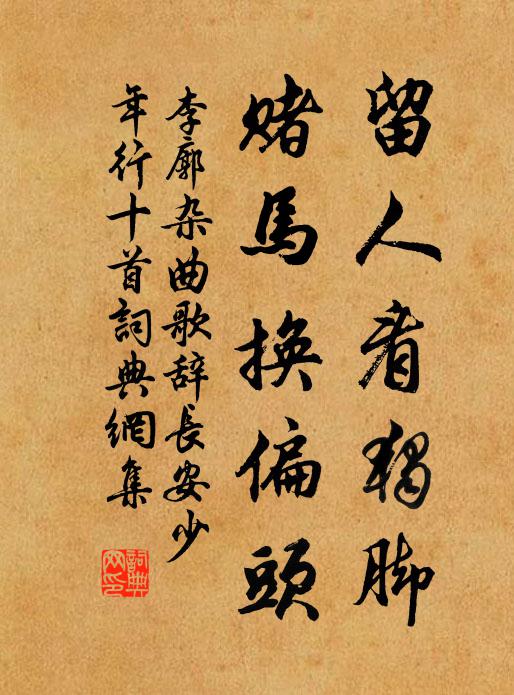 留人看獨脚
賭馬換偏頭
李廓杂曲歌辞長安少
年行十首詞典網集
詞典
网印